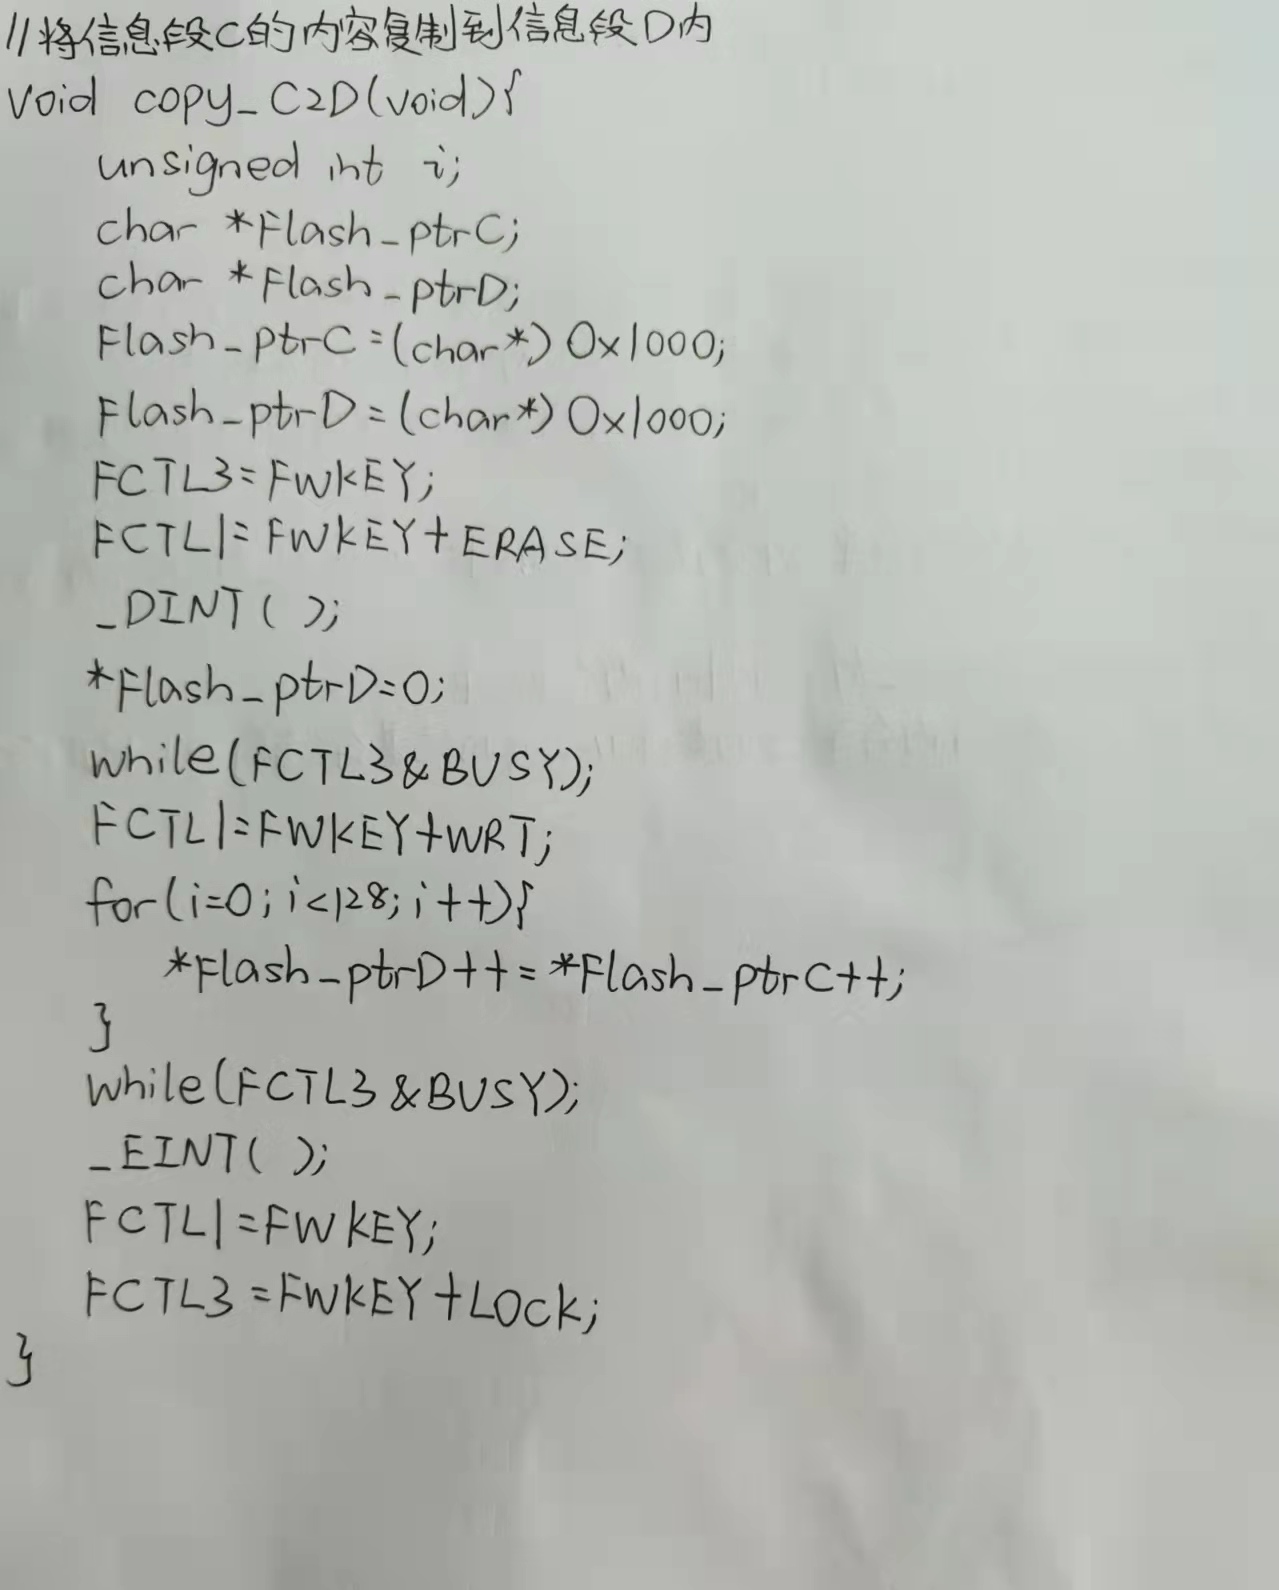 //将信息段C的内容复制到信息段D内
void copy_C2D(void){
unsigned int i;
char *Flash_ptrC;
char *Flash_ptrD;
Flash_ptrC=(char*)0x1000;
Flash_ptrD=(char*)0x1000;
FCTL3=FWKEY;
FCTL1=FWKEY+ERASE;
_DINT( );
*Flash_ptrD=0;
while(FCTL3&BUSY);
FCTL1=FWKEY+WRT;
for(i=0;i<128;i++){
*Flash_ptrD++=*Flash_ptrC++;
}
while(FCTL3&BUSY);
_EINT( );
FCTL1=FWKEY;
FCTL3=FWKEY+LOCK;
}